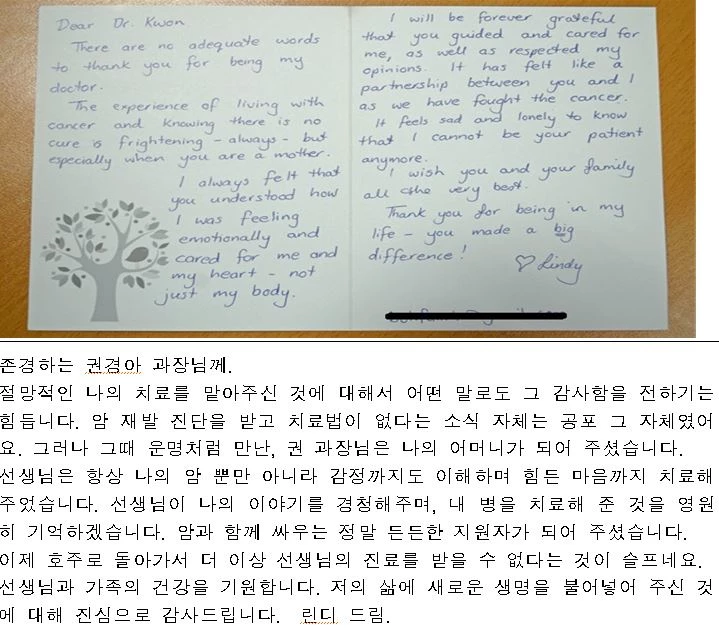 Dear Dr. Kwon
There are no adequate words
to thank you for being my
doctor.
The experience of living with
cancer and knowing there is no
cure is frightening - always - but
especially when you are a mother.
I always felt that
you understood how
I was feeling
emotionally and
cared for me and
my heart - not
just my body.
I will be forever grateful
that you guided and cared for
me, as well as respected my
opinions. It has felt like a
partnership between you and I
as we have fought the cancer.
It feels sad and lonely to know
that I cannot be your patient
anymore.
I wish you and your family
all the very best.
Thank you for being in my
life - you made a big
difference!
♡ Lindy
존경하는 권경아 과장님께.
절망적인 나의 치료를 맡아주신 것에 대해서 어떤 말로도 그 감사함을 전하기는
힘듭니다. 암 재발 진단을 받고 치료법이 없다는 소식 자체는 공포 그 자체였어
요. 그러나 그때 운명처럼 만난, 권 과장님은 나의 어머니가 되어 주셨습니다.
선생님은 항상 나의 암 뿐만 아니라 감정까지도 이해하며 힘든 마음까지 치료해
주었습니다. 선생님이 나의 이야기를 경청해주며, 내 병을 치료해 준 것을 영원
히 기억하겠습니다. 암과 함께 싸우는 정말 든든한 지원자가 되어 주셨습니다.
이제 호주로 돌아가서 더 이상 선생님의 진료를 받을 수 없다는 것이 슬프네요.
선생님과 가족의 건강을 기원합니다. 저의 삶에 새로운 생명을 불어넣어 주신 것
에 대해 진심으로 감사드립니다. 린디 드림.